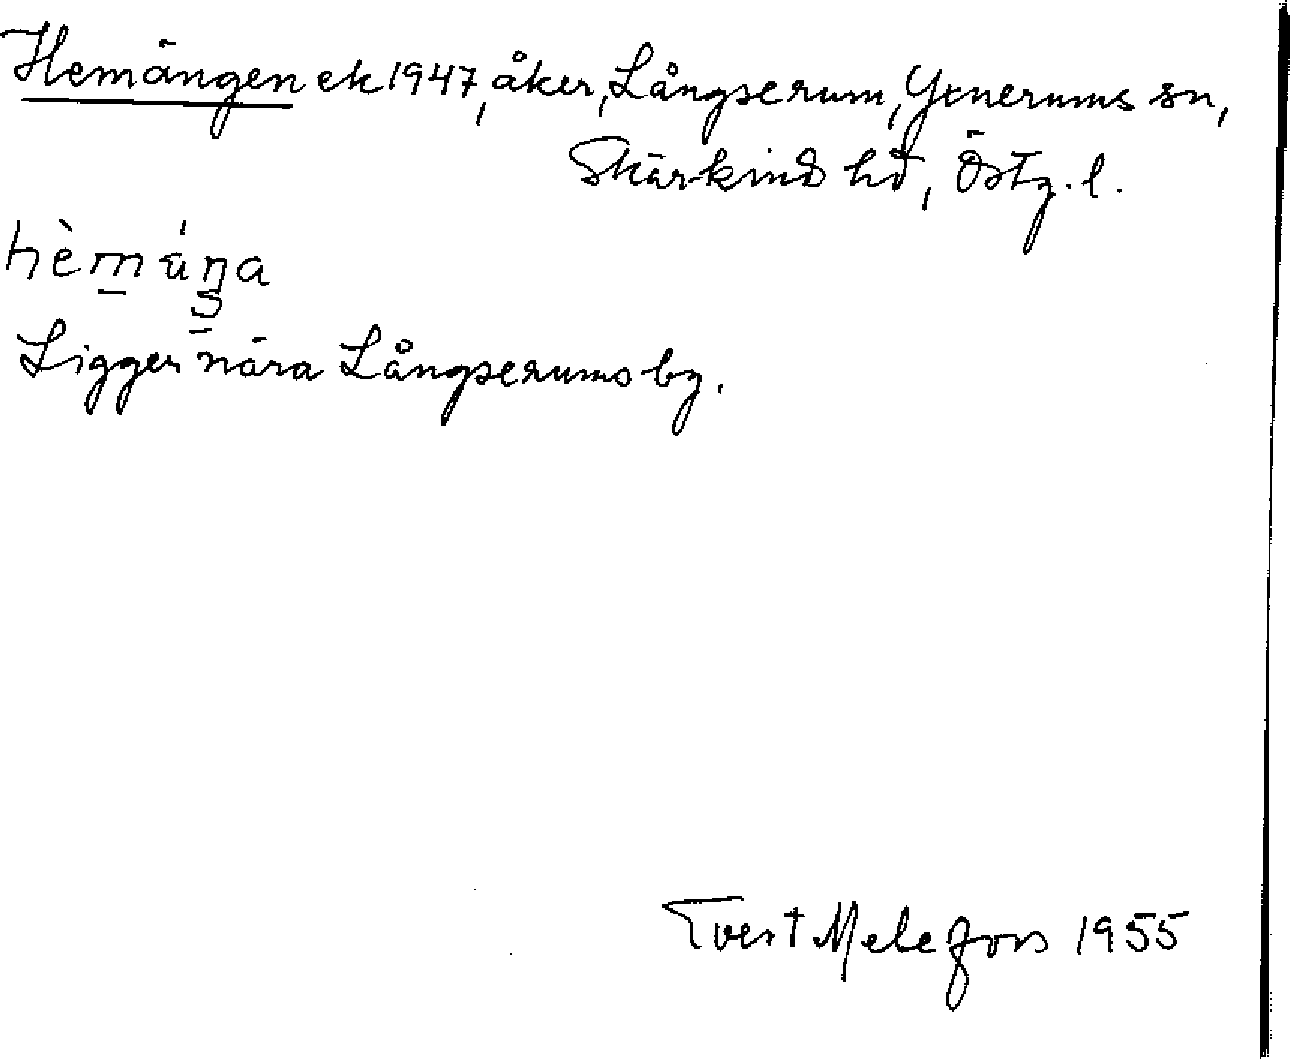 Hemängen ek 1947, åker, Långserum, Yxnerums sn,
Skärkind hd, Östg. l.
Ligger nära Långserums by.
Evert Melefors 1955